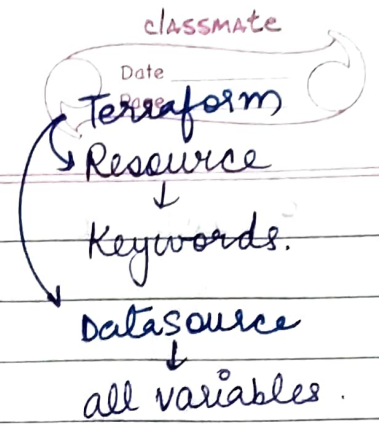 classmate
Date
Page
Terraform
Resource
↓
Keywords.
Datasource
↓
all variables.